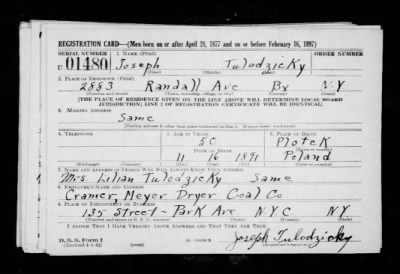 REGISTRATION CARD—(Men born on or after April 28, 1877 and on or before February 16, 1897)
SERIAL NUMBER 1. NAME (Print) ORDER NUMBER
U 01480 Joseph Tulodzicky
(First) (Middle) (Last)
2. PLACE OF RESIDENCE (Print)
2883 Randall Ave Bx NY
(Number and street) (Town, township, village, or city) (County) (State)
[THE PLACE OF RESIDENCE GIVEN ON THE LINE ABOVE WILL DETERMINE LOCAL BOARD
JURISDICTION; LINE 2 OF REGISTRATION CERTIFICATE WILL BE IDENTICAL]
3. MAILING ADDRESS
Same
[Mailing address if other than place indicated on line 2. If same insert word same]
4. TELEPHONE 5. AGE IN YEARS 6. PLACE OF BIRTH
50 Plotek
DATE OF BIRTH (Town or county)
11 16 1891 Poland
(Exchange) (Number) (Mo.) (Day) (Yr.) (State or country)
7. NAME AND ADDRESS OF PERSON WHO WILL ALWAYS KNOW YOUR ADDRESS
Mrs. Lilian Tulodzicky Same
8. EMPLOYER'S NAME AND ADDRESS
Cramer, Meyer Dryer Coal Co
9. PLACE OF EMPLOYMENT OR BUSINESS
135 Street - Park Ave N.Y.C NY
(Number and street or R. F. D. number) (Town) (County) (State)
I AFFIRM THAT I HAVE VERIFIED ABOVE ANSWERS AND THAT THEY ARE TRUE.
D. S. S. Form 1
Joseph Tulodzicky